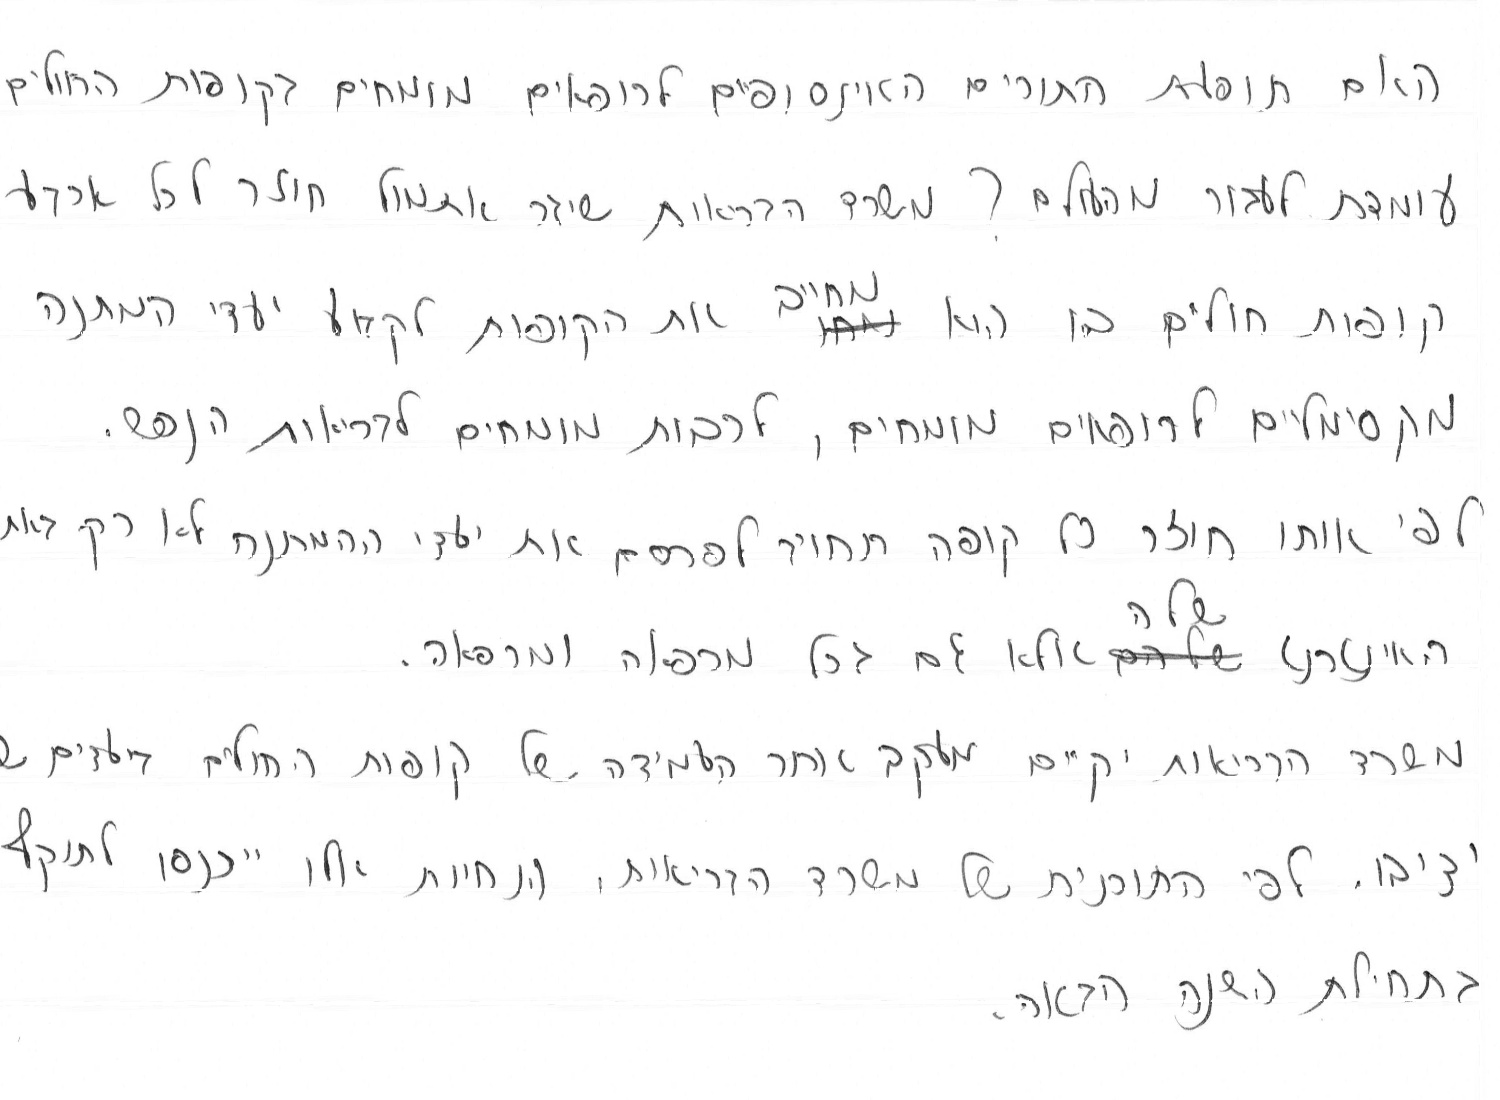 האם תופעת התורים האינסופיים לרופאים מומחים בקופות החולים
עומדת לעבור מהעולם? משרד הבריאות שיגר אתמול חוזר לכל ארבע
קופות חולים בו הוא מחייב את הקופות לקבוע יעדי המתנה
מקסימליים לרופאים מומחים, לרבות מומחים לבריאות הנפש.
לפי אותו חוזר כל קופה תחויב לפרסם את יעדי ההמתנה לא רק באת
האינטרנט שלה אלא גם בכל מרפאה ומרפאה.
משרד הבריאות יקיים מעקב אחר העמידה של קופות החולים ביעדים ש
יציבו. לפי התוכנית של משרד הבריאות, הנחיות אלו ייכנסו לתוקף
בתחילת השנה הבאה.